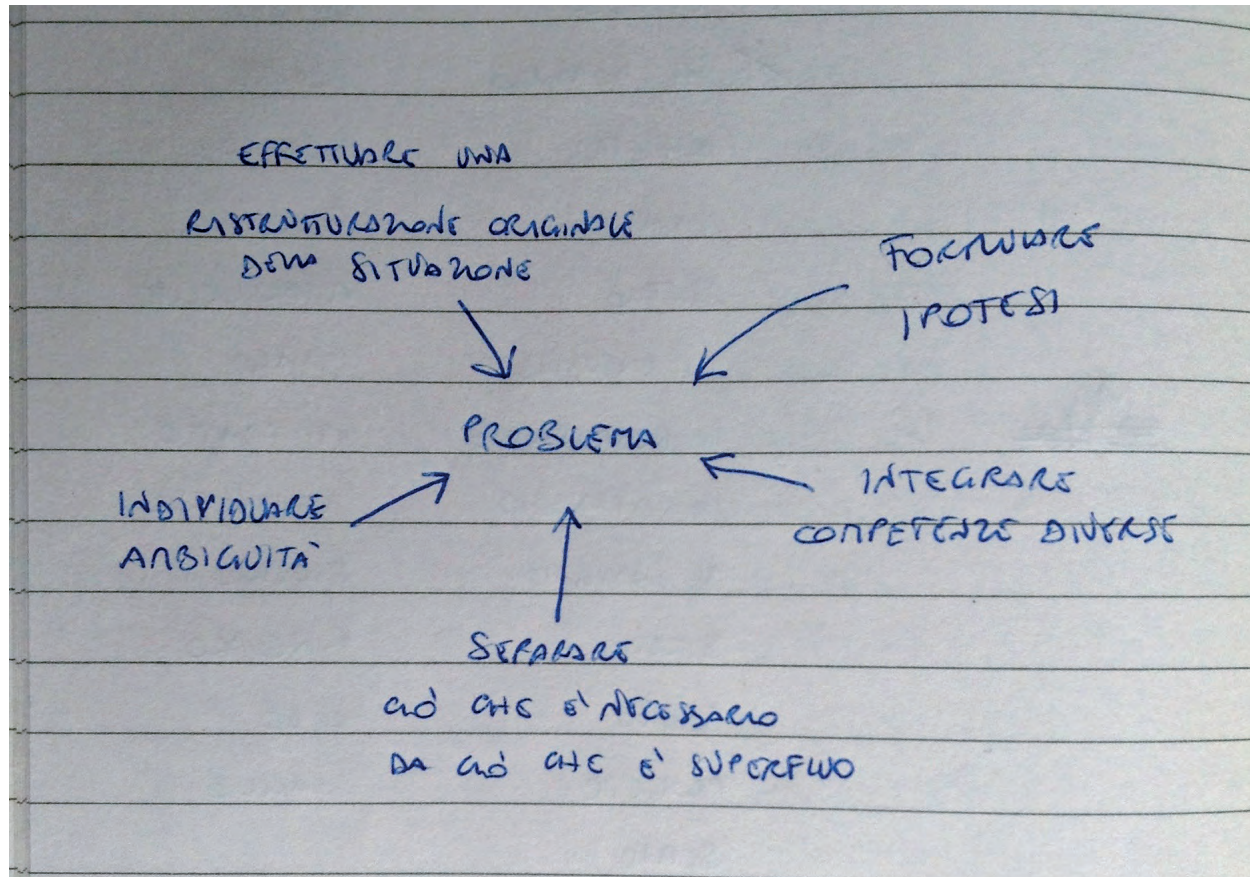 EFFETTUARE UNA
RISTRUTTURAZIONE ORIGINALE
DELLA SITUAZIONE
FORMULARE
IPOTESI
PROBLEMA
INDIVIDUARE
AMBIGUITÀ
INTEGRARE
COMPETENZE DIVERSE
SEPARARE
CIÒ CHE E' NECESSARIO
DA CIÒ CHE E' SUPERFLUO